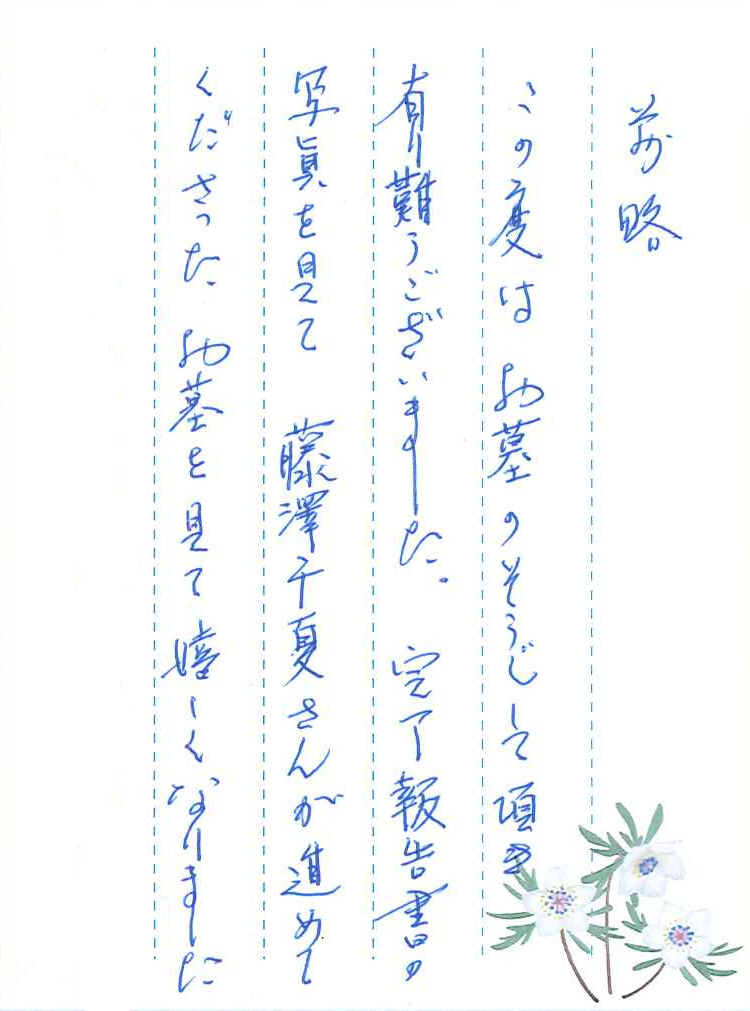 前略
この度は お墓のそうじして頂き
有り難うございました。 完了報告書の
写真を見て 藤澤千夏さんが進めて
くださった お墓を見て 嬉しくなりました